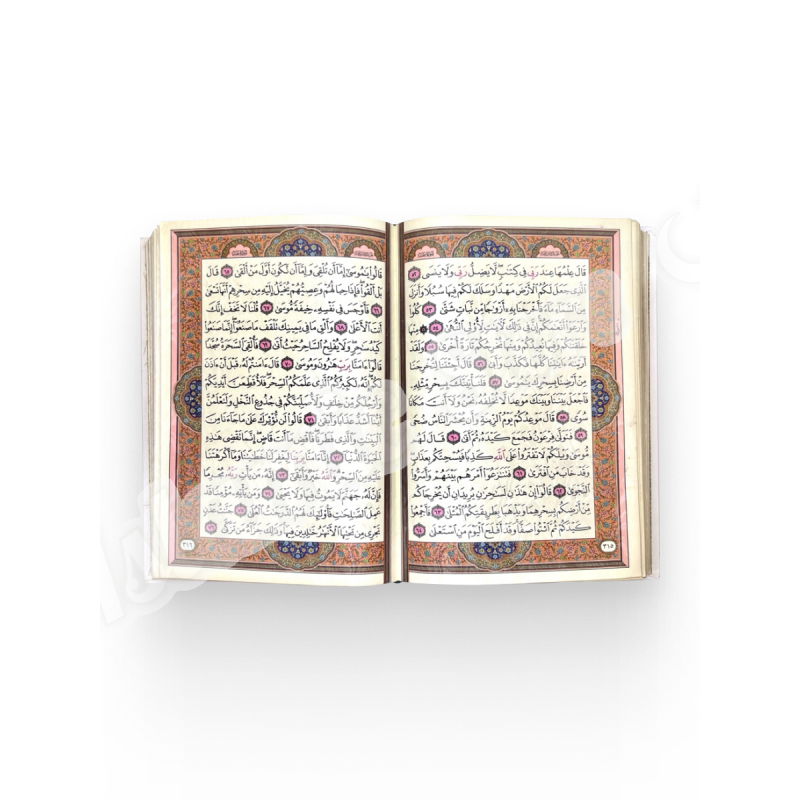 قَالَ عِلْمُهَا عِندَ رَبِّي فِي كِتَٰبٍ لَّا يَضِلُّ رَبِّي وَلَا يَنسَى ٥٢
ٱلَّذِي جَعَلَ لَكُمُ ٱلْأَرْضَ مَهْدًا وَسَلَكَ لَكُمْ فِيهَا سُبُلًا وَأَنزَلَ
مِنَ ٱلسَّمَآءِ مَآءً فَأَخْرَجْنَا بِهِۦٓ أَزْوَٰجًا مِّن نَّبَاتٍ شَتَّىٰ ٥٣ كُلُوا۟
وَٱرْعَوْا۟ أَنْعَٰمَكُمْ إِنَّ فِي ذَٰلِكَ لَءَايَٰتٍ لِّأُو۟لِي ٱلنُّهَىٰ ٥٤ ۞ مِنْهَا
خَلَقْنَٰكُمْ وَفِيهَا نُعِيدُكُمْ وَمِنْهَا نُخْرِجُكُمْ تَارَةً أُخْرَىٰ ٥٥ وَلَقَدْ
أَرَيْنَٰهُ ءَايَٰتِنَا كُلَّهَا فَكَذَّبَ وَأَبَىٰ ٥٦ قَالَ أَجِئْتَنَا لِتُخْرِجَنَا
مِنْ أَرْضِنَا بِسِحْرِكَ يَٰمُوسَىٰ ٥٧ فَلَنَأْتِيَنَّكَ بِسِحْرٍ مِّثْلِهِۦ
فَٱجْعَلْ بَيْنَنَا وَبَيْنَكَ مَوْعِدًا لَّا نُخْلِفُهُۥ نَحْنُ وَلَآ أَنتَ مَكَانًا
سُوًى ٥٨ قَالَ مَوْعِدُكُمْ يَوْمُ ٱلزِّينَةِ وَأَن يُحْشَرَ ٱلنَّاسُ ضُحًى
٥٩ فَتَوَلَّىٰ فِرْعَوْنُ فَجَمَعَ كَيْدَهُۥ ثُمَّ أَتَىٰ ٦٠ قَالَ لَهُم
مُّوسَىٰ وَيْلَكُمْ لَا تَفْتَرُوا۟ عَلَى ٱللَّهِ كَذِبًا فَيُسْحِتَكُم بِعَذَابٍ
وَقَدْ خَابَ مَنِ ٱفْتَرَىٰ ٦١ فَتَنَٰزَعُوٓا۟ أَمْرَهُم بَيْنَهُمْ وَأَسَرُّوا۟
ٱلنَّجْوَىٰ ٦٢ قَالُوٓا۟ إِنْ هَٰذَٰنِ لَسَٰحِرَٰنِ يُرِيدَانِ أَن يُخْرِجَاكُم
مِّنْ أَرْضِكُم بِسِحْرِهِمَا وَيَذْهَبَا بِطَرِيقَتِكُمُ ٱلْمُثْلَىٰ ٦٣ فَأَجْمِعُوا۟
كَيْدَكُمْ ثُمَّ ٱئْتُوا۟ صَفًّا وَقَدْ أَفْلَحَ ٱلْيَوْمَ مَنِ ٱسْتَعْلَىٰ ٦٤
٣١٥
قَالُوا۟ يَٰمُوسَىٰٓ إِمَّآ أَن تُلْقِيَ وَإِمَّآ أَن نَّكُونَ أَوَّلَ مَنْ أَلْقَىٰ ٦٥ قَالَ
بَلْ أَلْقُوا۟ فَإِذَا حِبَالُهُمْ وَعِصِيُّهُمْ يُخَيَّلُ إِلَيْهِ مِن سِحْرِهِمْ أَنَّهَا تَسْعَىٰ
٦٦ فَأَوْجَسَ فِي نَفْسِهِۦ خِيفَةً مُّوسَىٰ ٦٧ قُلْنَا لَا تَخَفْ إِنَّكَ
أَنتَ ٱلْأَعْلَىٰ ٦٨ وَأَلْقِ مَا فِي يَمِينِكَ تَلْقَفْ مَا صَنَعُوٓا۟ إِنَّمَا صَنَعُوا۟
كَيْدُ سَٰحِرٍ وَلَا يُفْلِحُ ٱلسَّاحِرُ حَيْثُ أَتَىٰ ٦٩ فَأُلْقِيَ ٱلسَّحَرَةُ سُجَّدًا
قَالُوٓا۟ ءَامَنَّا بِرَبِّ هَٰرُونَ وَمُوسَىٰ ٧٠ قَالَ ءَامَنتُمْ لَهُۥ قَبْلَ أَنْ ءَاذَنَ
لَكُمْ إِنَّهُۥ لَكَبِيرُكُمُ ٱلَّذِي عَلَّمَكُمُ ٱلسِّحْرَ فَلَأُقَطِّعَنَّ أَيْدِيَكُمْ
وَأَرْجُلَكُم مِّنْ خِلَٰفٍ وَلَأُصَلِّبَنَّكُمْ فِي جُذُوعِ ٱلنَّخْلِ وَلَتَعْلَمُنَّ
أَيُّنَآ أَشَدُّ عَذَابًا وَأَبْقَىٰ ٧١ قَالُوا۟ لَن نُّؤْثِرَكَ عَلَىٰ مَا جَآءَنَا مِنَ
ٱلْبَيِّنَٰتِ وَٱلَّذِي فَطَرَنَا فَٱقْضِ مَآ أَنتَ قَاضٍ إِنَّمَا تَقْضِي هَٰذِهِ
ٱلْحَيَوٰةَ ٱلدُّنْيَآ ٧٢ إِنَّآ ءَامَنَّا بِرَبِّنَا لِيَغْفِرَ لَنَا خَطَٰيَٰنَا وَمَآ أَكْرَهْتَنَا
عَلَيْهِ مِنَ ٱلسِّحْرِ وَٱللَّهُ خَيْرٌ وَأَبْقَىٰٓ ٧٣ إِنَّهُۥ مَن يَأْتِ رَبَّهُۥ مُجْرِمًا
فَإِنَّ لَهُۥ جَهَنَّمَ لَا يَمُوتُ فِيهَا وَلَا يَحْيَىٰ ٧٤ وَمَن يَأْتِهِۦ مُؤْمِنًا قَدْ
عَمِلَ ٱلصَّٰلِحَٰتِ فَأُو۟لَٰٓئِكَ لَهُمُ ٱلدَّرَجَٰتُ ٱلْعُلَىٰ ٧٥ جَنَّٰتُ عَدْنٍ
تَجْرِي مِن تَحْتِهَا ٱلْأَنْهَٰرُ خَٰلِدِينَ فِيهَا وَذَٰلِكَ جَزَآءُ مَن تَزَكَّىٰ ٧٦
٣١٦